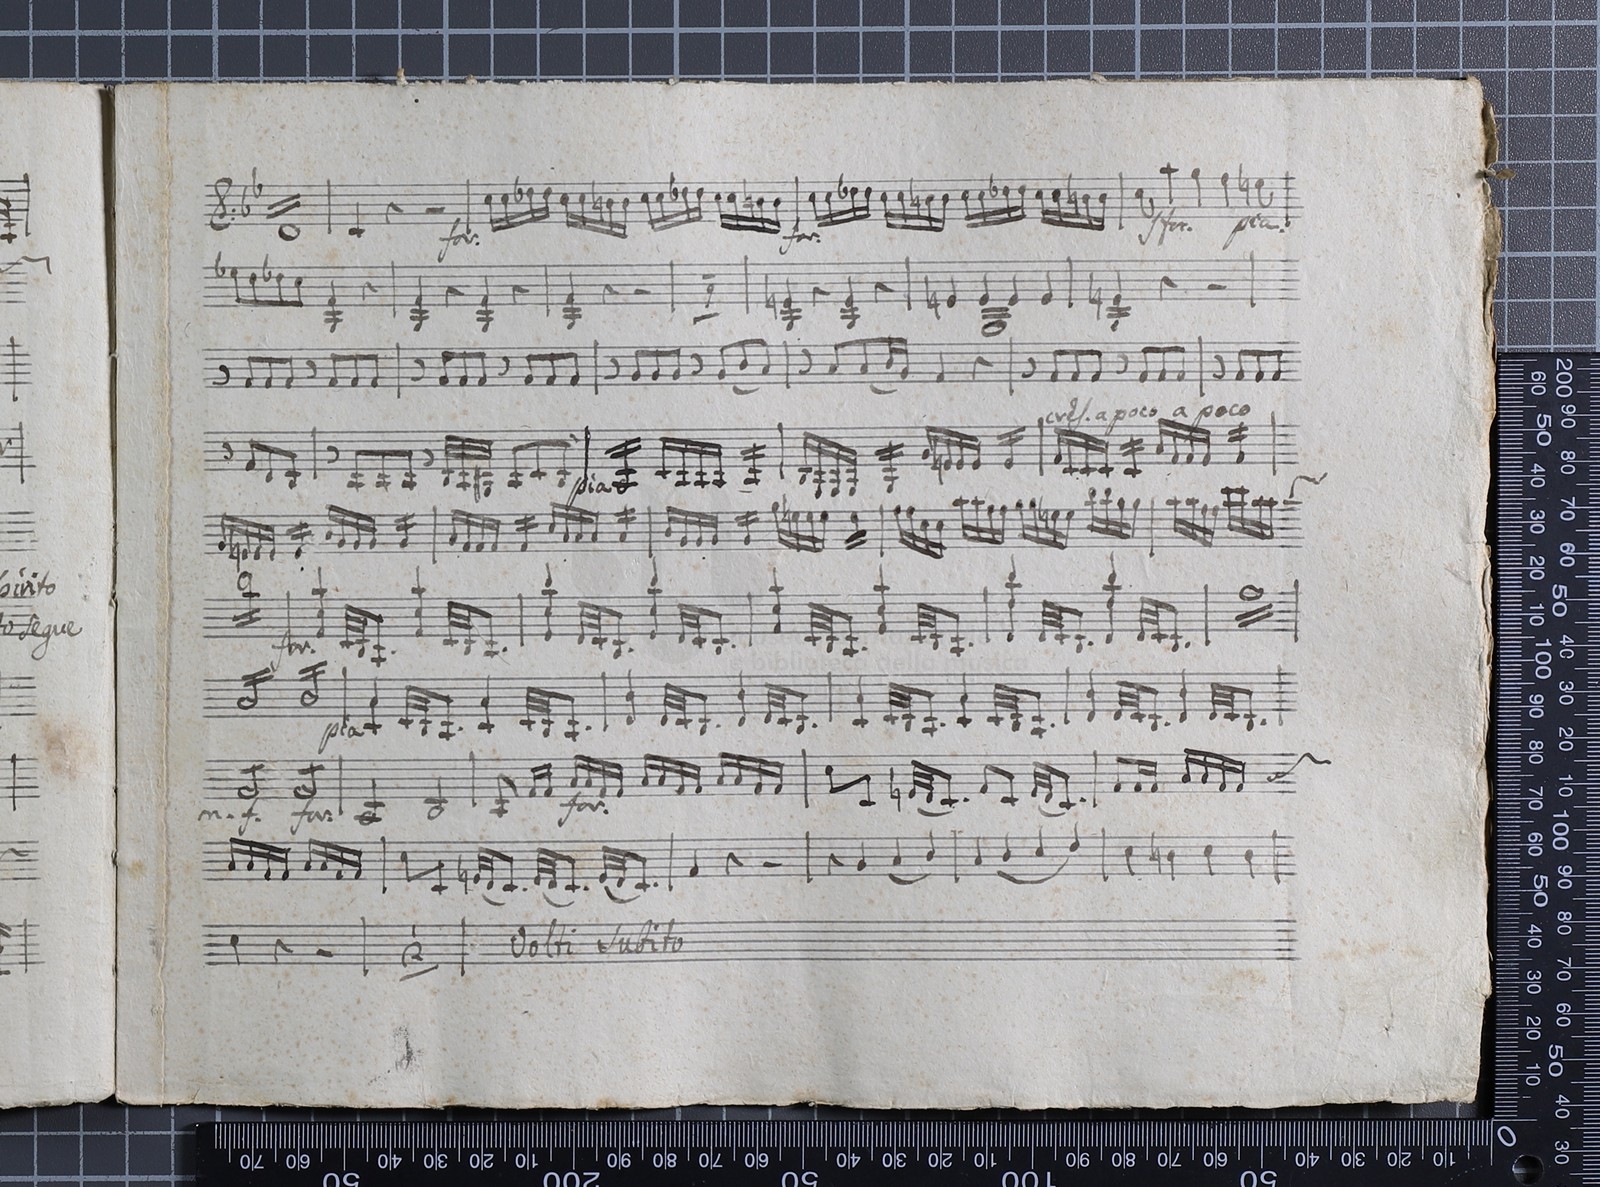 for. for. sfor. pia.
cresc. a poco a poco
pia
for.
e biblioteca della musica
pia
m. f. for. for.
Volti Subito
to Segue
200 90 80 70 60 50 40 30 20 10 100 90 80 70 60 50 40 30
60 50 40 30 20 10 100 90 80 70 60 50 40 30 20 10
0
70 60 50 40 30 20 10 200 90 80 70 60 50 40 30 20 10 100 90 80 70 60 50 40 30 20 10